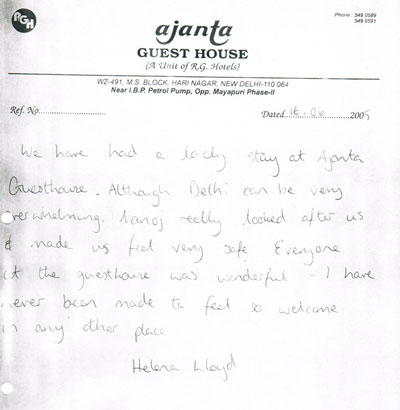 RGH
Phone : 549 0589
549 0591
ajanta
GUEST HOUSE
(A Unit of R.G. Hotels)
WZ-491, M.S. BLOCK, HARI NAGAR, NEW DELHI-110 064
Near I.B.P. Petrol Pump, Opp. Mayapuri Phase-II
Ref. No.......................... Dated 16 - 06 2005
We have had a lovely stay at Ajanta
Guesthouse. Although Delhi can be very
overwhelming. really looked after us
& made us feel very safe Everyone
at the guesthouse was wonderful - I have
never been made to feel so welcome
in any other place
Helena Lloyd